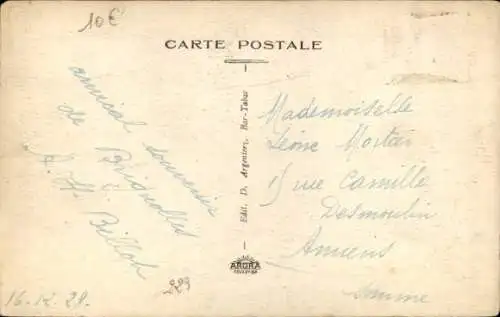 10€
CARTE POSTALE
amical souvenir
de Brignolles
Billot
16-12-29.
229
Edit. D. Argentery, Bar-Tabac
ARGRA
Mademoiselle
Léone
15 rue Camille
Desmoulin
Amiens
Somme